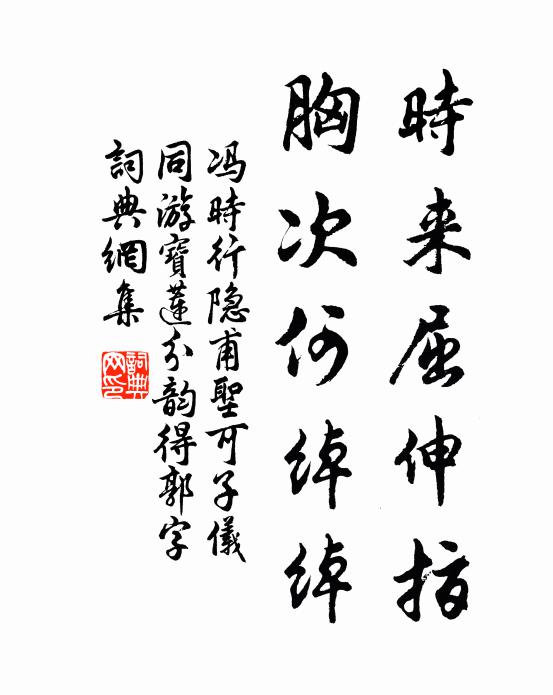 時来屈伸指
胸次何綽綽
冯時行隐甫聖可子儀
同游寶蓮分韵得郭字
詞典網集
詞典网印